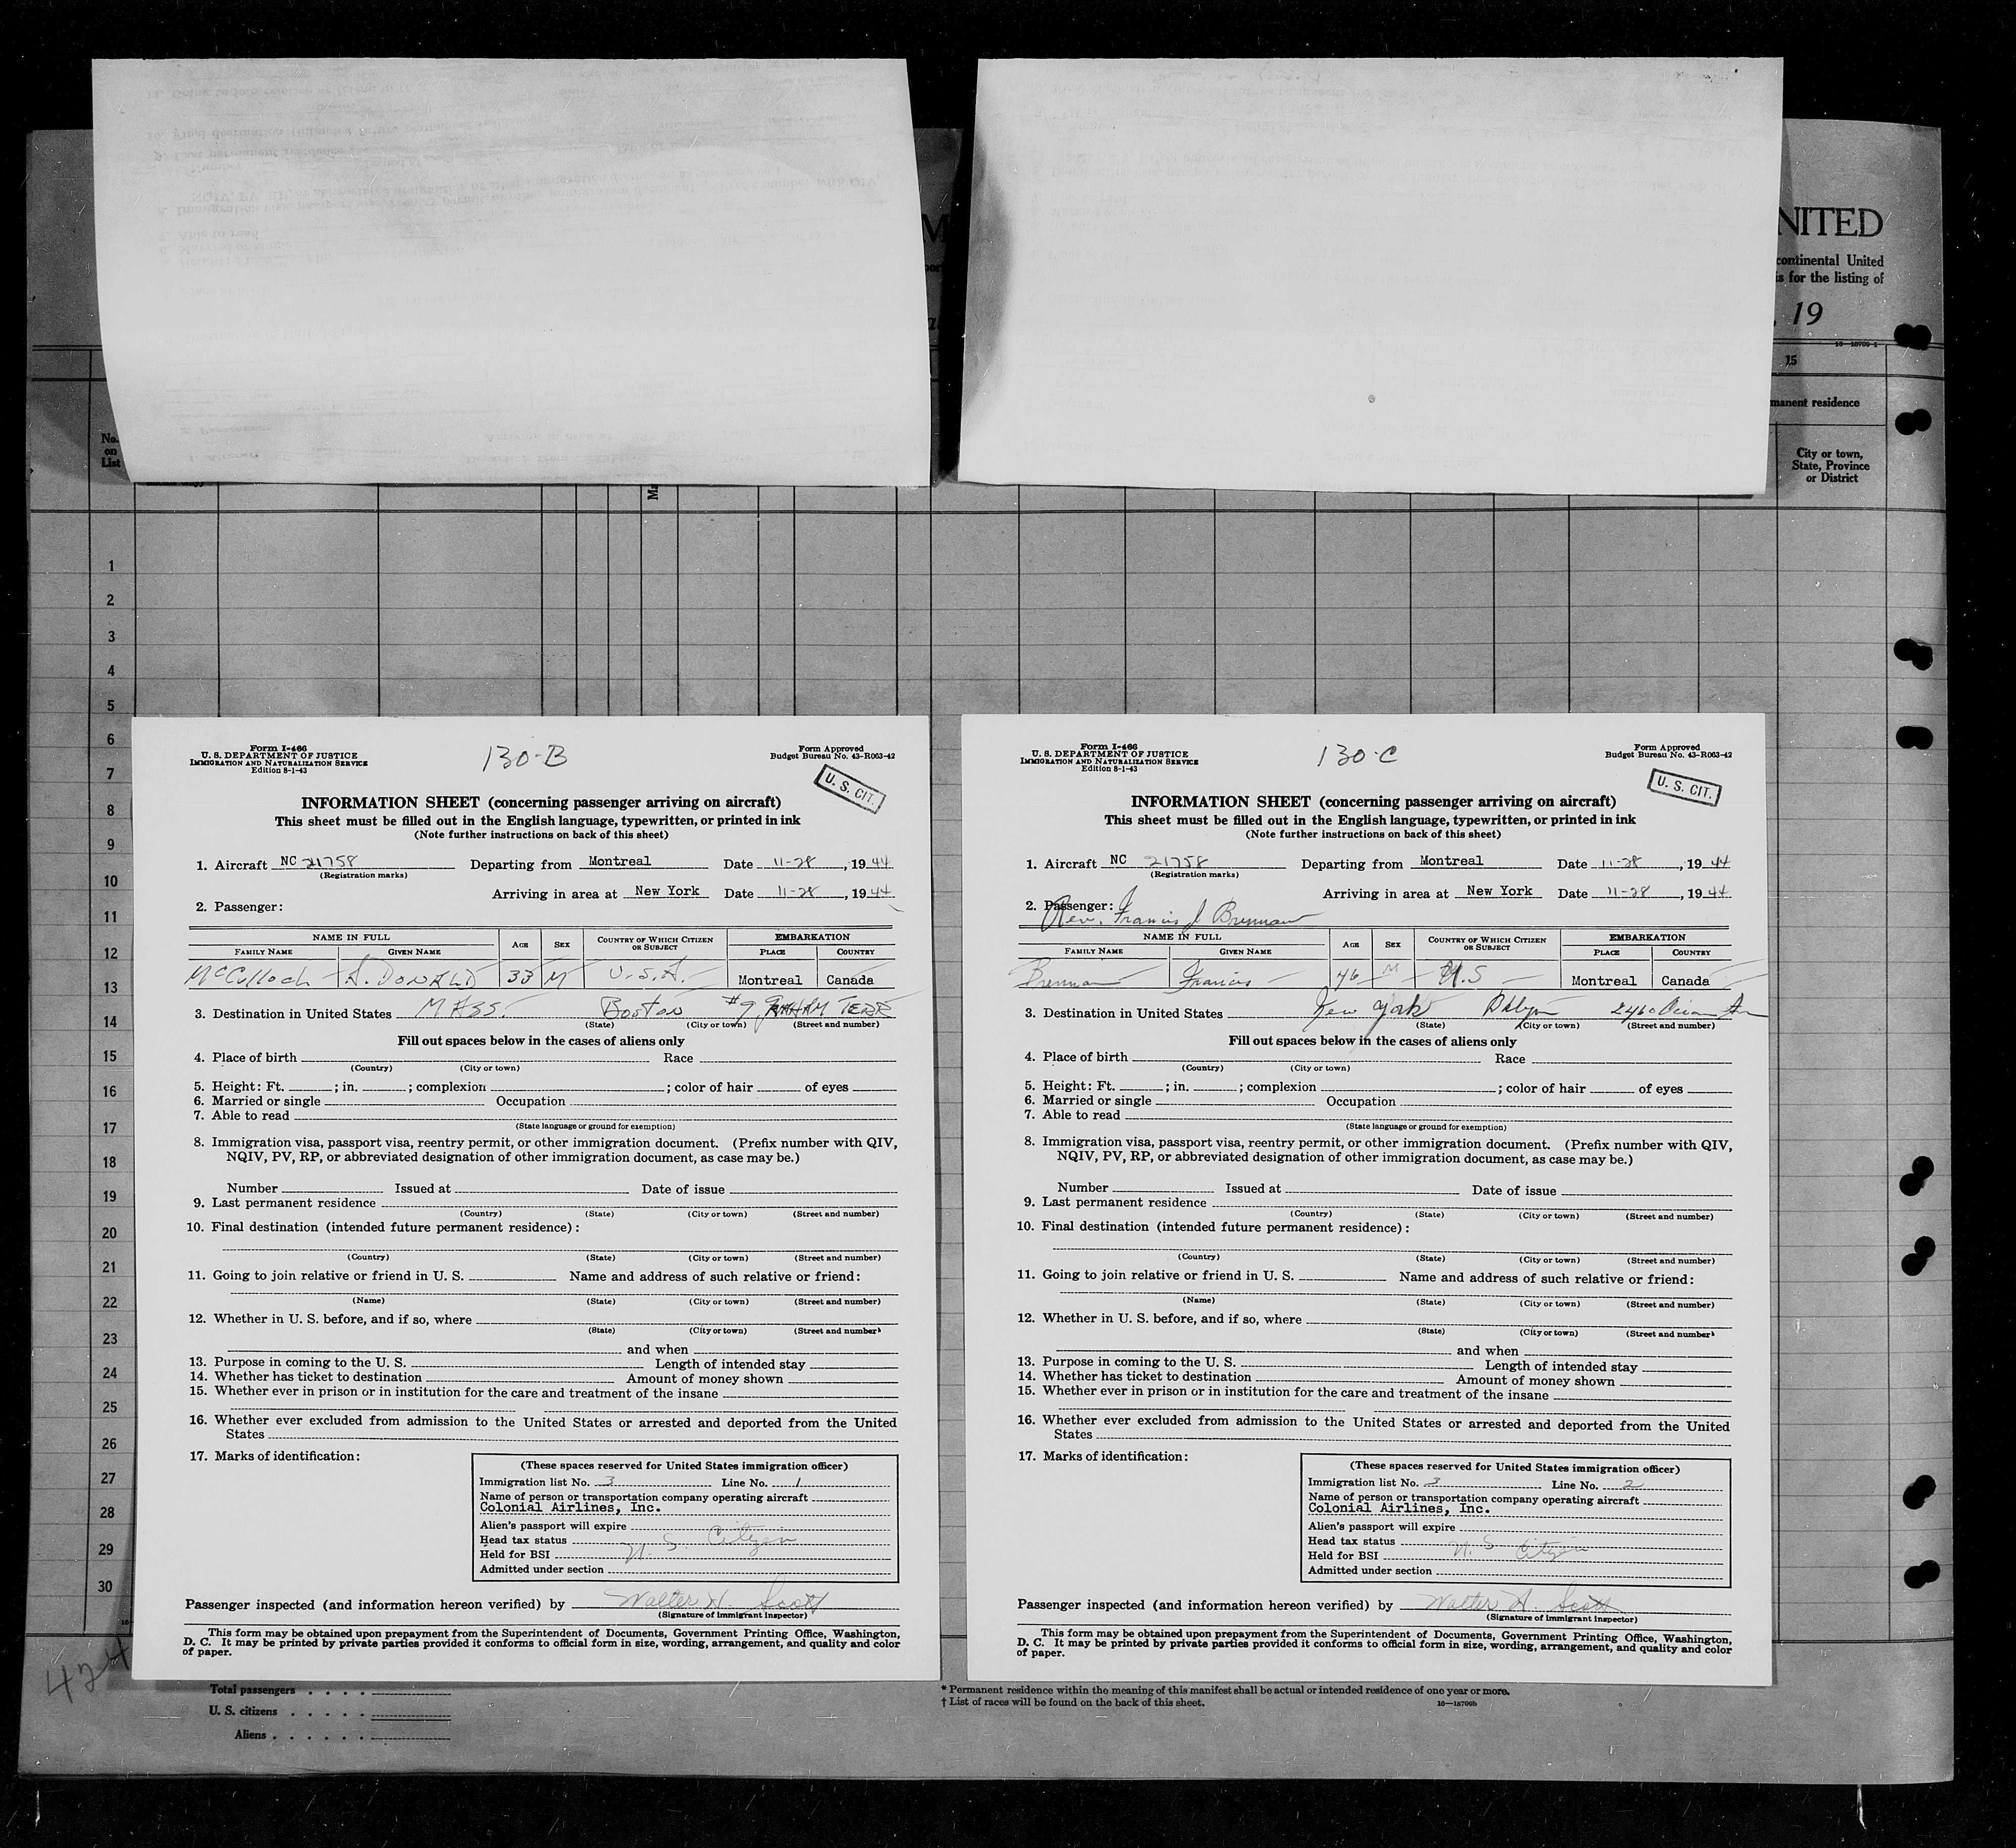 M
NITED
continental United
is for the listing of
, 19
16—18709-1
15
manent residence
No.
on
List
City or town,
State, Province
or District
Ma
1
2
3
4
5
6
7
8
9
10
11
12
13
14
15
16
17
18
19
20
21
22
23
24
25
26
27
28
29
30
Form I-466
U. S. DEPARTMENT OF JUSTICE
IMMIGRATION AND NATURALIZATION SERVICE
Edition 8-1-43
130-B
Form Approved
Budget Bureau No. 43-R063-42
U. S. CIT.
INFORMATION SHEET (concerning passenger arriving on aircraft)
This sheet must be filled out in the English language, typewritten, or printed in ink
(Note further instructions on back of this sheet)
1. Aircraft NC 21758 Departing from Montreal Date 11-28, 1944
(Registration marks)
Arriving in area at New York Date 11-28, 1944
2. Passenger:
NAME IN FULL AGE SEX COUNTRY OF WHICH CITIZEN OR SUBJECT EMBARKATION
FAMILY NAME GIVEN NAME PLACE COUNTRY
McCulloch S. DONALD 33 M U.S.A. Montreal Canada
3. Destination in United States MASS. Boston #9 TERR
(State) (City or town) (Street and number)
Fill out spaces below in the cases of aliens only
4. Place of birth Race
(Country) (City or town)
5. Height: Ft. ; in. ; complexion ; color of hair of eyes
6. Married or single Occupation
7. Able to read
(State language or ground for exemption)
8. Immigration visa, passport visa, reentry permit, or other immigration document. (Prefix number with QIV,
NQIV, PV, RP, or abbreviated designation of other immigration document, as case may be.)
Number Issued at Date of issue
9. Last permanent residence
(Country) (State) (City or town) (Street and number)
10. Final destination (intended future permanent residence):
(Country) (State) (City or town) (Street and number)
11. Going to join relative or friend in U. S. Name and address of such relative or friend:
(Name) (State) (City or town) (Street and number)
12. Whether in U. S. before, and if so, where
(State) (City or town) (Street and number)
and when
13. Purpose in coming to the U. S. Length of intended stay
14. Whether has ticket to destination Amount of money shown
15. Whether ever in prison or in institution for the care and treatment of the insane
16. Whether ever excluded from admission to the United States or arrested and deported from the United
States
17. Marks of identification:
(These spaces reserved for United States immigration officer)
Immigration list No. 3 Line No. 1
Name of person or transportation company operating aircraft
Colonial Airlines, Inc.
Alien's passport will expire
Head tax status
Held for BSI U. S. Citizen
Admitted under section
Passenger inspected (and information hereon verified) by Walter H. Scott
(Signature of immigrant inspector)
This form may be obtained upon prepayment from the Superintendent of Documents, Government Printing Office, Washington,
D. C. It may be printed by private parties provided it conforms to official form in size, wording, arrangement, and quality and color
of paper.
Form I-466
U. S. DEPARTMENT OF JUSTICE
IMMIGRATION AND NATURALIZATION SERVICE
Edition 8-1-43
130-C
Form Approved
Budget Bureau No. 43-R063-42
U. S. CIT.
INFORMATION SHEET (concerning passenger arriving on aircraft)
This sheet must be filled out in the English language, typewritten, or printed in ink
(Note further instructions on back of this sheet)
1. Aircraft NC 21758 Departing from Montreal Date 11-28, 1944
(Registration marks)
Arriving in area at New York Date 11-28, 1944
2. Passenger:
Rev. Francis J Brennan
NAME IN FULL AGE SEX COUNTRY OF WHICH CITIZEN OR SUBJECT EMBARKATION
FAMILY NAME GIVEN NAME PLACE COUNTRY
Brennan Francis 46 M U.S Montreal Canada
3. Destination in United States New York Bklyn 2460 Ocean Av
(State) (City or town) (Street and number)
Fill out spaces below in the cases of aliens only
4. Place of birth Race
(Country) (City or town)
5. Height: Ft. ; in. ; complexion ; color of hair of eyes
6. Married or single Occupation
7. Able to read
(State language or ground for exemption)
8. Immigration visa, passport visa, reentry permit, or other immigration document. (Prefix number with QIV,
NQIV, PV, RP, or abbreviated designation of other immigration document, as case may be.)
Number Issued at Date of issue
9. Last permanent residence
(Country) (State) (City or town) (Street and number)
10. Final destination (intended future permanent residence):
(Country) (State) (City or town) (Street and number)
11. Going to join relative or friend in U. S. Name and address of such relative or friend:
(Name) (State) (City or town) (Street and number)
12. Whether in U. S. before, and if so, where
(State) (City or town) (Street and number)
and when
13. Purpose in coming to the U. S. Length of intended stay
14. Whether has ticket to destination Amount of money shown
15. Whether ever in prison or in institution for the care and treatment of the insane
16. Whether ever excluded from admission to the United States or arrested and deported from the United
States
17. Marks of identification:
(These spaces reserved for United States immigration officer)
Immigration list No. 3 Line No. 2
Name of person or transportation company operating aircraft
Colonial Airlines, Inc.
Alien's passport will expire
Head tax status
Held for BSI U. S Citizen
Admitted under section
Passenger inspected (and information hereon verified) by Walter H. Scott
(Signature of immigrant inspector)
This form may be obtained upon prepayment from the Superintendent of Documents, Government Printing Office, Washington,
D. C. It may be printed by private parties provided it conforms to official form in size, wording, arrangement, and quality and color
of paper.
424
Total passengers
U. S. citizens
Aliens
* Permanent residence within the meaning of this manifest shall be actual or intended residence of one year or more.
† List of races will be found on the back of this sheet.